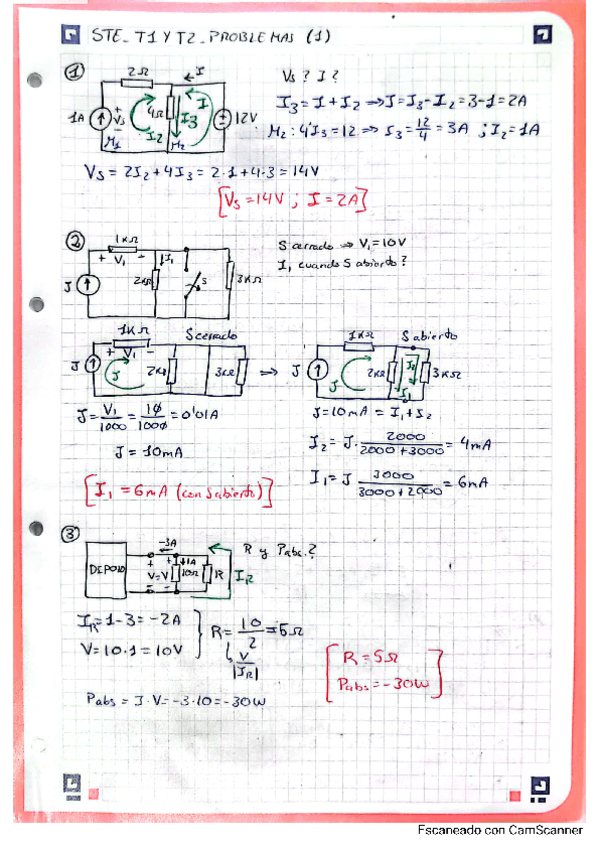 STE_T1 Y T2_PROBLEMAS (1)
1
2Ω
I
Vs? I?
4Ω
I
I3
1A
+
Vs
-
I2
M1
M2
12V
I3 = I + I2 ⇒ I = I3 - I2 = 3 - 1 = 2A
M2: 4·I3 = 12 ⇒ I3 = 12/4 = 3A ; I2 = 1A
Vs = 2I2 + 4I3 = 2·1 + 4·3 = 14V
[Vs = 14V ; I = 2A]
2
1KΩ
+ V1 -
I1
J
2KΩ
S
3KΩ
S cerrado ⇒ V1 = 10V
I1 cuando S abierto?
1KΩ
S cerrado
+ V1 -
J
J
2KΩ
3KΩ
⇒
1KΩ
S abierto
J
J
2KΩ
I2
I1
3KΩ
J = V1/1000 = 10/1000 = 0'01A
J = 10mA
[I1 = 6mA (con S abierto)]
J = 10mA = I1 + I2
I2 = J · 2000/(2000+3000) = 4mA
I1 = J 3000/(3000+2000) = 6mA
3
DIPOLO
-3A
+
V=V
-
1A
10Ω
R
IR
R y Pabs.?
IR = 1 - 3 = -2A
V = 10·1 = 10V
R = 10/2 = 5Ω
V/|IR|
[R = 5Ω
Pabs = -30W]
Pabs = I·V = -3·10 = -30W
Escaneado con CamScanner